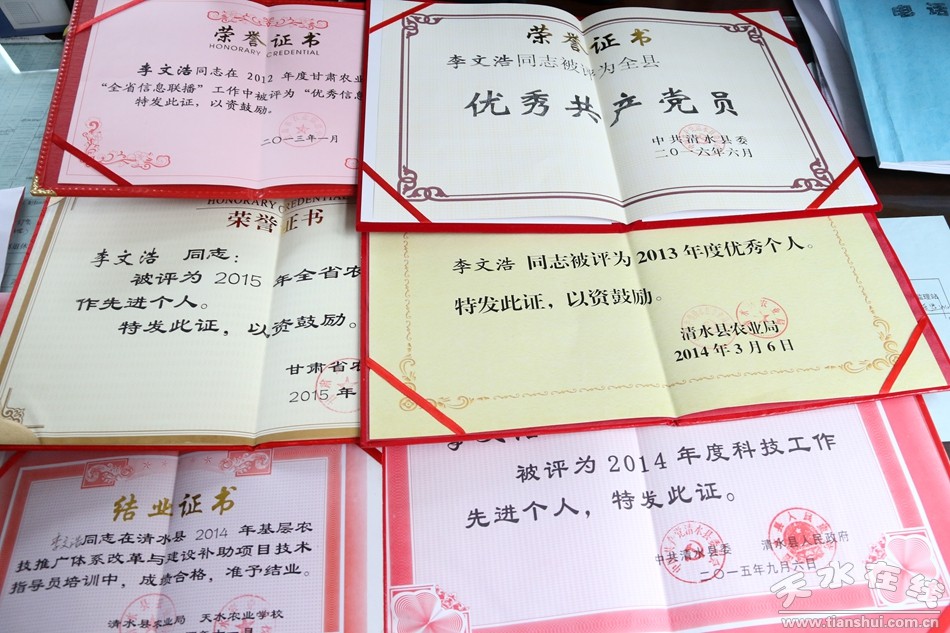 荣誉证书
HONORARY CREDENTIAL
李文浩同志在 2012 年度甘肃农业
“全省信息联播”工作中被评为“优秀信息
特发此证，以资鼓励。
二〇一三年一月
荣誉证书
李文浩同志被评为全县
优秀共产党员
中共清水县委
二〇一六年六月
电话
HONORARY CREDENTIAL
荣誉证书
李文浩 同志：
被评为 2015 年全省农
作先进个人。
特发此证，以资鼓励。
甘肃省农
2015 年
李文浩 同志被评为 2013 年度优秀个人。
特发此证，以资鼓励。
清水县农业局
2014 年 3 月 6 日
结业证书
李文浩同志在清水县 2014 年基层农
技推广体系改革与建设补助项目技术
指导员培训中，成绩合格，准予结业。
清水县农业局 天水农业学校
李文浩
被评为 2014 年度科技工作
先进个人，特发此证。
中共清水县委 清水县人民政府
二〇一五年九月六日
天水在线
www.tianshui.com.cn